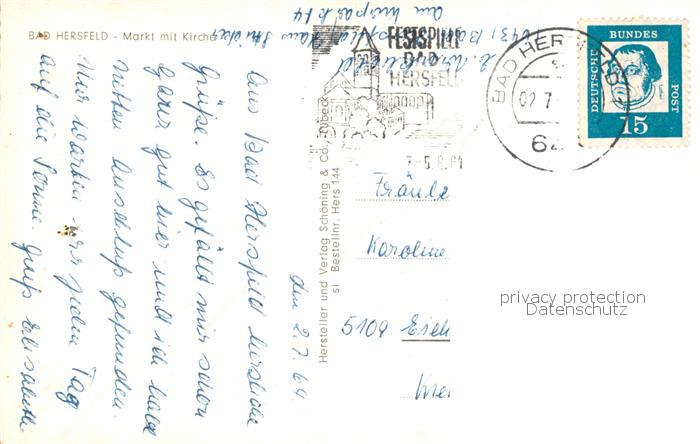 BAD HERSFELD - Markt mit Kirche
den 2.7.64.
Aus Bad Hersfeld herzliche
Grüße. Es gefällt mir schon
ganz gut hier und ich habe
netten Anschluß gefunden.
Nur warten wir jeden Tag
auf die Sonne. Gruß Elisabeth
Hersteller und Verlag Schöning & Co., Lübeck
si Bestellnr. Hers 144
FESTSPIELE
BAD
HERSFELD
BAD HERSFELD
02.7.
64
DEUTSCHE
BUNDES
POST
15
Fräule
Karoline
5109
privacy protection
Datenschutz